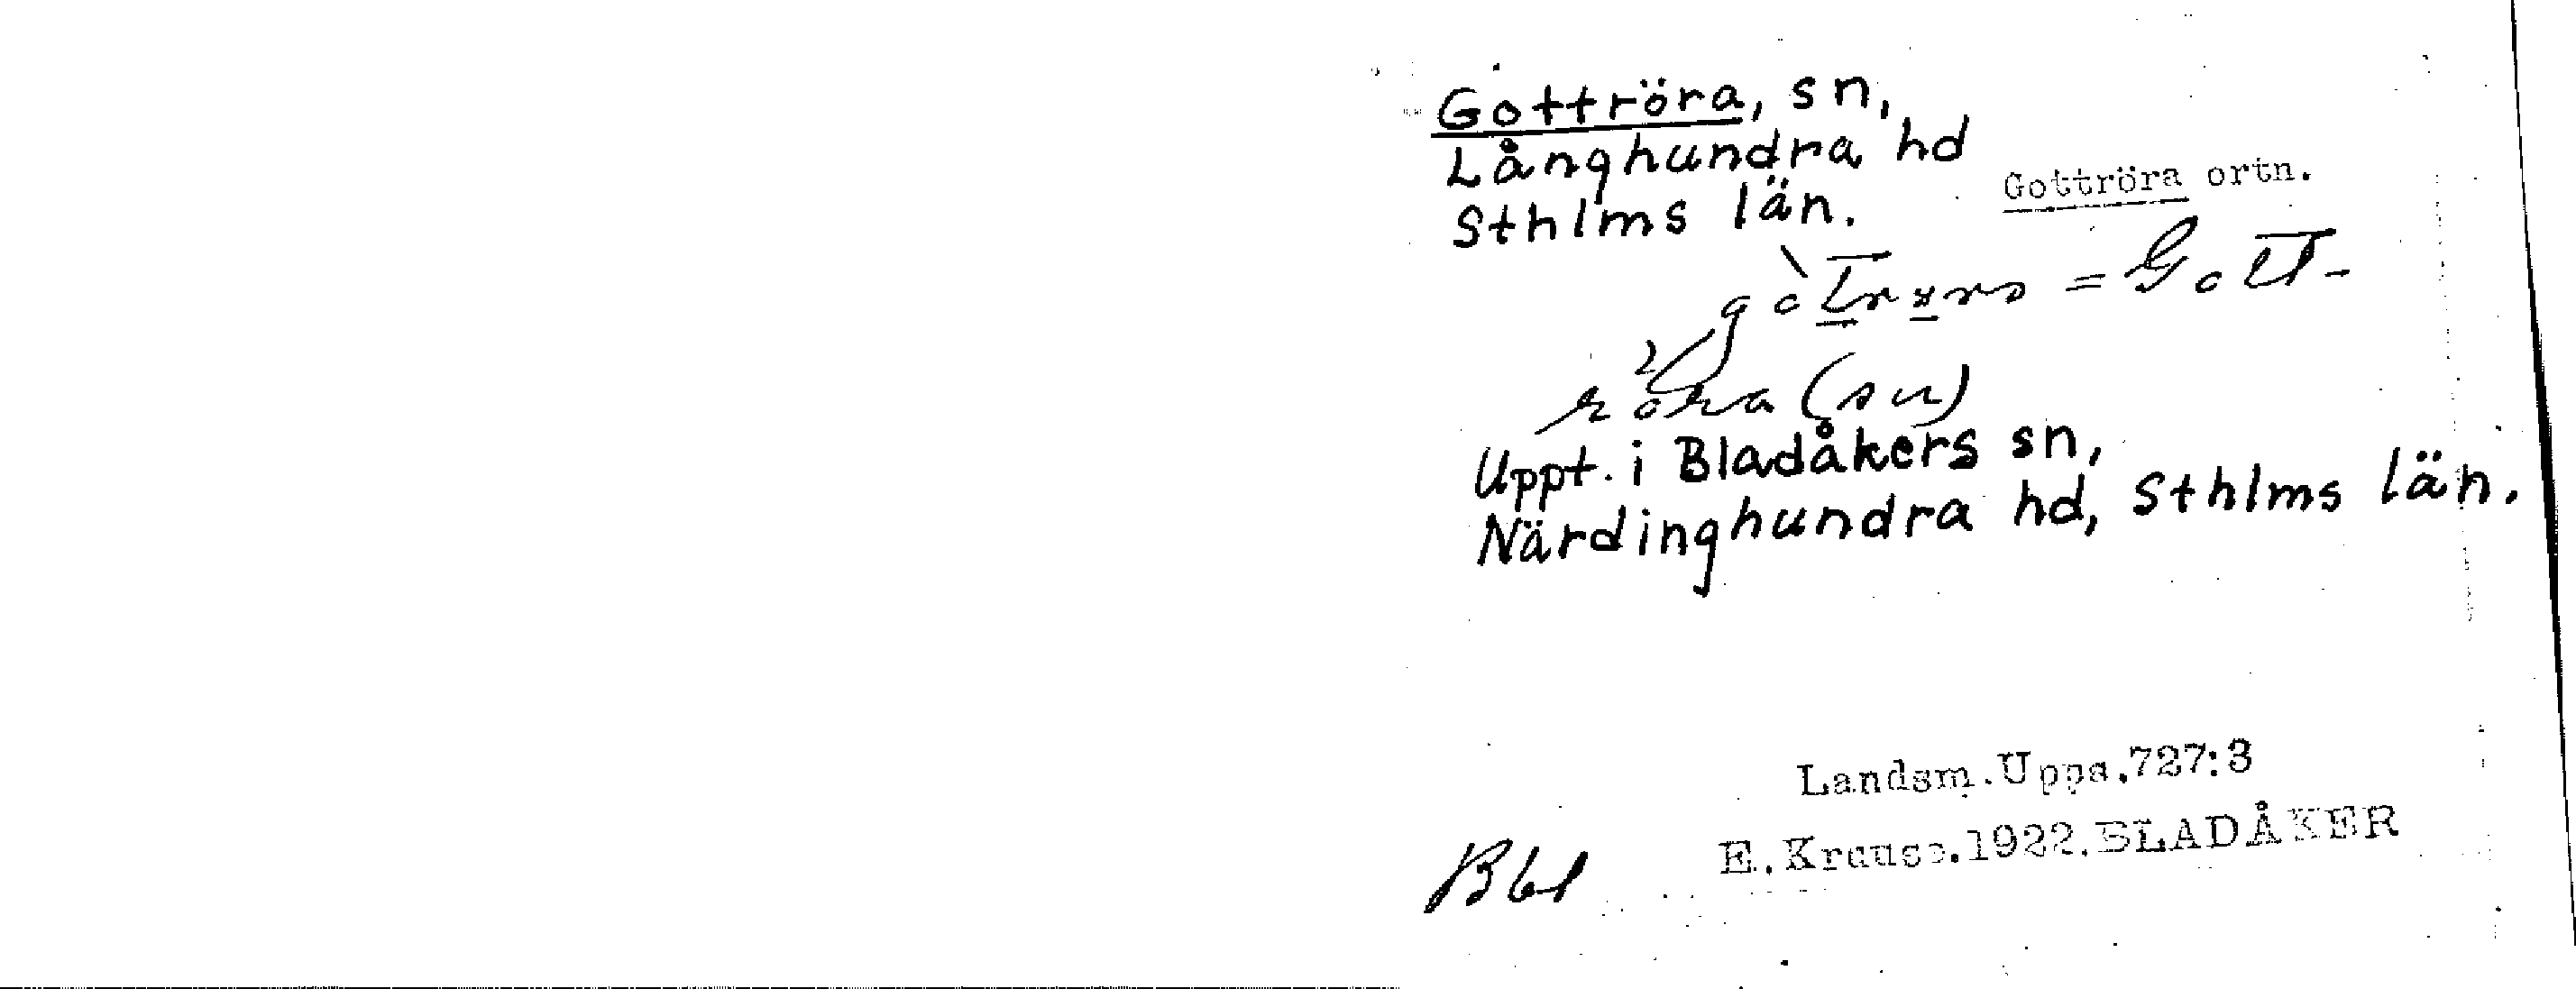 Gottröra, sn,
Långhundra hd
Sthlms län.
Gottröra ortn.
= Gott-
röra (sn)
Uppt. i Bladåkers sn,
Närdinghundra hd, Sthlms län.
Landsm.Upps.727:3
E.Krause.1922.BLADÅKER